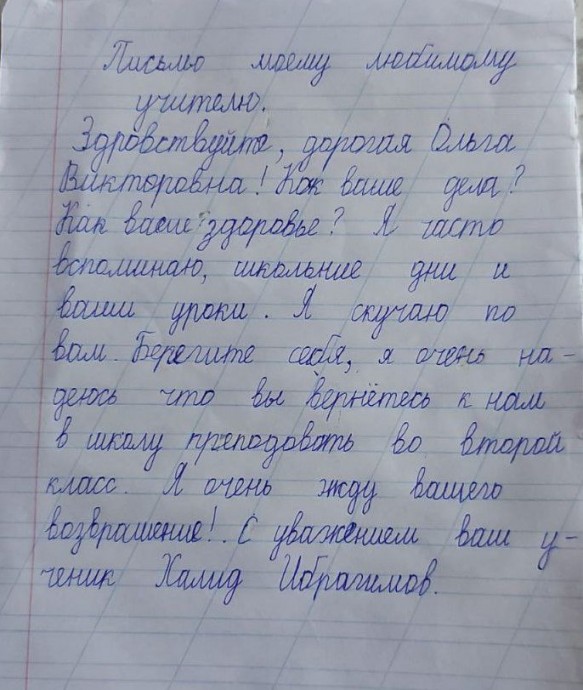 Письмо моему любимому
учителю.
Здравствуйте, дорогая Ольга
Викторовна! Как ваше дела?
Как ваше здоровье? Я часто
вспоминаю, школьние дни и
ваши уроки. Я скучаю по
вам. Берегите себя, я очень на-
деюсь что вы вернётесь к нам
в школу преподовать во второй
класс. Я очень жду вашего
возврашение!. С уважением ваш у-
ченик Халид Ибрагимов.